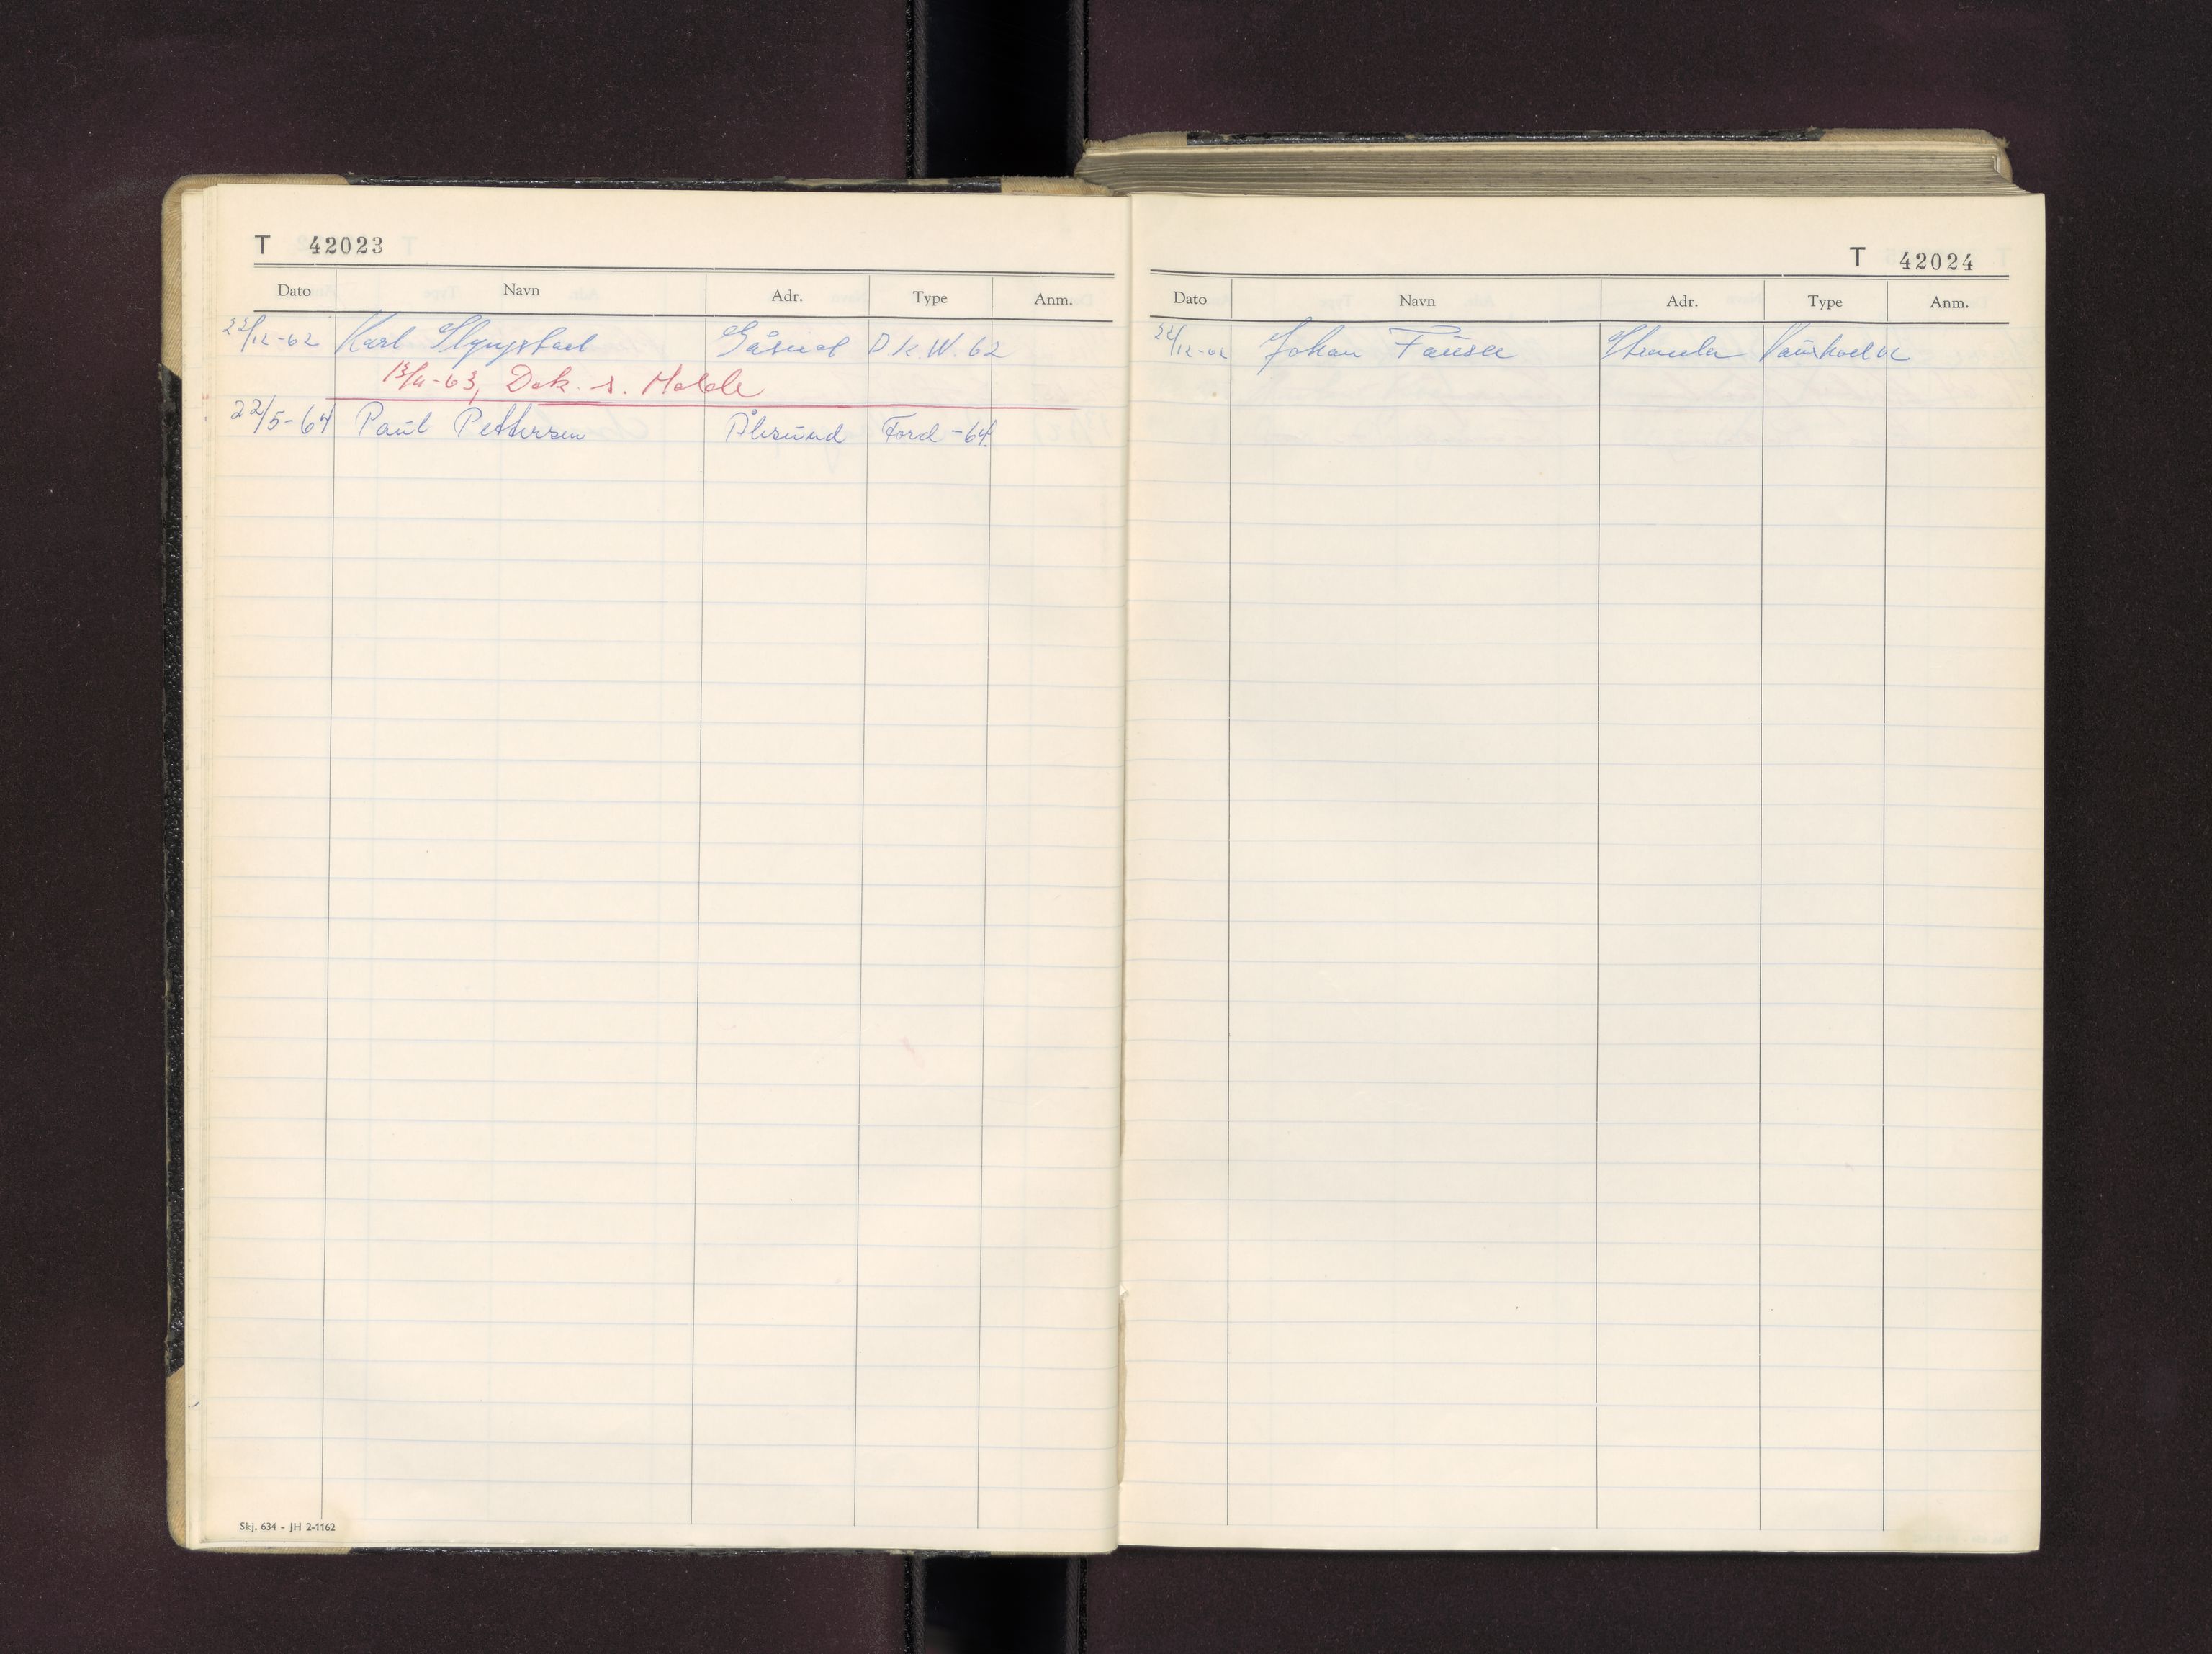 T 42023
Dato Navn Adr. Type Anm.
22/12-62 Karl D.K.W. 62
13/11-63, Dok. s. Molde
22/5-64 Paul Pettersen Ålesund Ford -64.
Skj. 634 - JH 2-1162
T 42024
Dato Navn Adr. Type Anm.
22/12-62 Johan Fausa Stranda Vauxhall 62